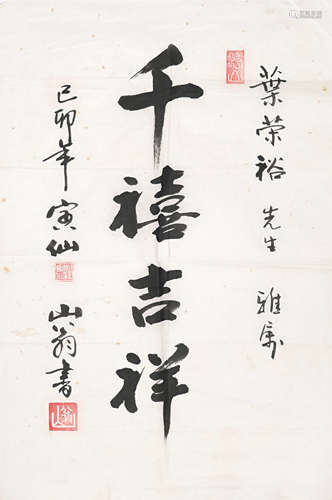 葉荣裕先生雅屬
千禧吉祥
己卯年寅仙
山翁書